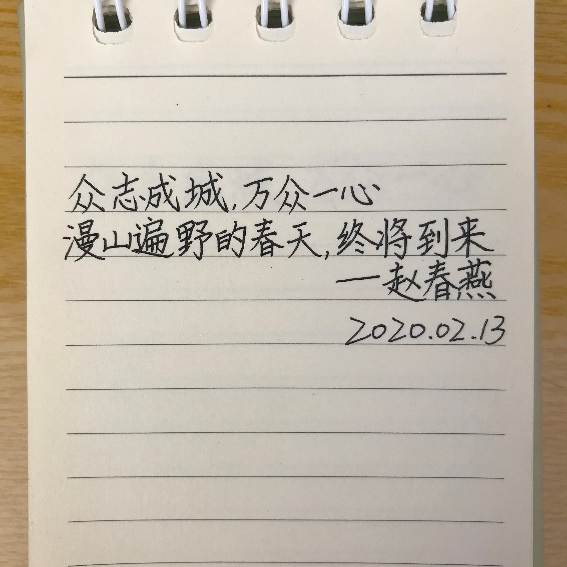 众志成城,万众一心
漫山遍野的春天,终将到来
—赵春燕
2020.02.13